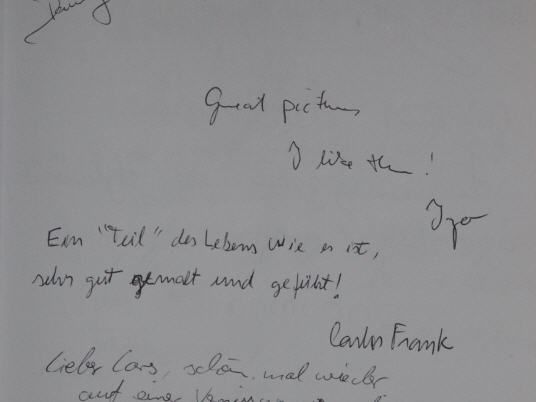 Great pictures
I like them!
Igor
Ein "Teil" des Lebens wie es ist,
sehr gut gemalt und gefühlt!
Carlos Frank
Lieber Lars, schön, mal wieder
auf einer Vernissage